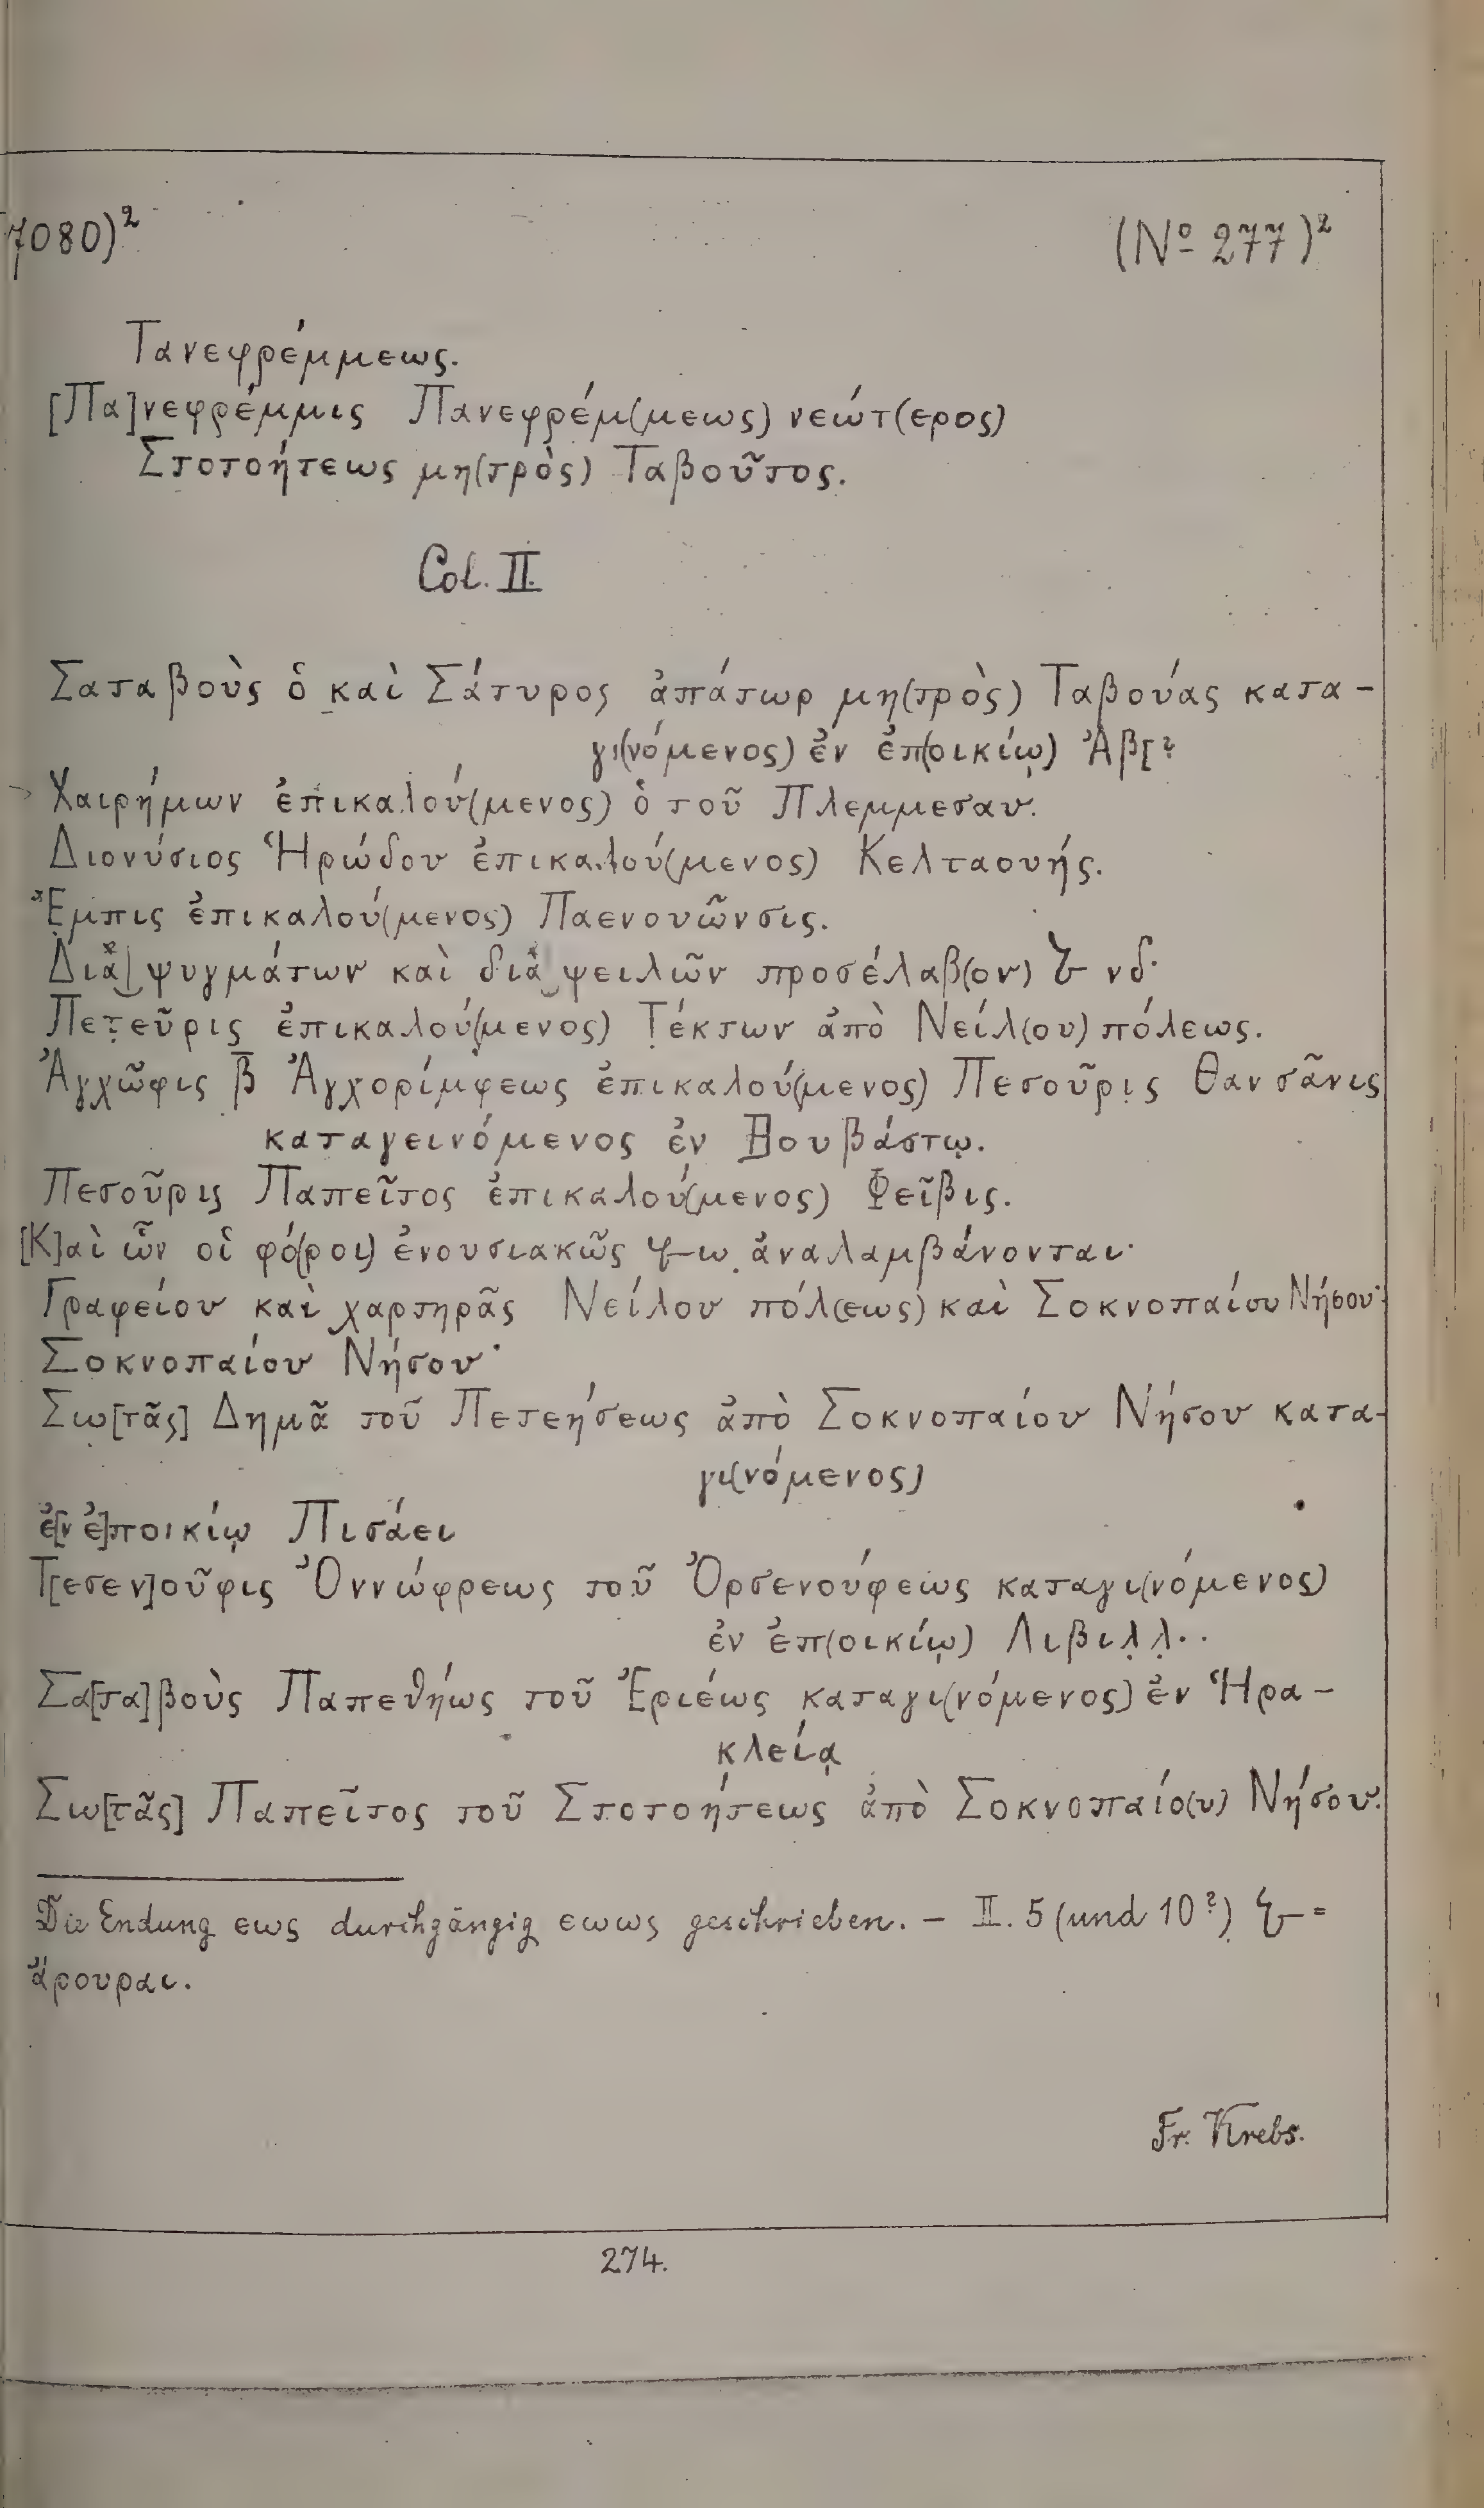 7080)²
(Nº 277)²
Τανεφρέμμεως.
[Πα]νεφρέμμις Πανεφρέμ(μεως) νεώτ(ερος)
Στοτοήτεως μη(τρὸς) Ταβοῦτος.
Col. II.
Σαταβοὺς ὁ καὶ Σάτυρος ἀπάτωρ μη(τρὸς) Ταβούας κατα-
γι(νόμενος) ἐν ἐπ(οικίῳ) Ἀβ[?
Χαιρήμων ἐπικαλού(μενος) ὁ τοῦ Πλεμμεσαυ.
Διονύσιος Ἡρώδου ἐπικαλού(μενος) Κελταουής.
Ἔμπις ἐπικαλού(μενος) Παενουῶνσις.
Διὰ ψυγμάτων καὶ διὰ ψειλῶν προσέλαβ(ον) νδ·
Πετεῦρις ἐπικαλού(μενος) Τέκτων ἀπὸ Νείλ(ου) πόλεως.
Ἀγχῶφις β̅ Ἀγχορίμφεως ἐπικαλού(μενος) Πεσοῦρις Θανσᾶνις
καταγεινόμενος ἐν Βουβάστῳ.
Πεσοῦρις Παπεῖτος ἐπικαλού(μενος) Φεῖβις.
[Κ]αὶ ὧν οἱ φό(ροι) ἐνουσιακῶς ἀναλαμβάνονται·
Γραφείου καὶ χαρτηρᾶς Νείλου πόλ(εως) καὶ Σοκνοπαίου Νήσου·
Σοκνοπαίου Νήσου·
Σω[τᾶς] Δημᾶ τοῦ Πετεήσεως ἀπὸ Σοκνοπαίου Νήσου κατα-
γι(νόμενος)
ἐ[ν ἐ]ποικίῳ Πισάει
Τ[εσεν]οῦφις Ὀννώφρεως τοῦ Ὀρσενούφεως καταγι(νόμενος)
ἐν ἐπ(οικίῳ) Λιβιλ̣λ̣..
Σα[τα]βοὺς Παπεθήως τοῦ Ἑριέως καταγι(νόμενος) ἐν Ἡρα-
κλείᾳ
Σω[τᾶς] Παπεῖτος τοῦ Στοτοήτεως ἀπὸ Σοκνοπαίο(υ) Νήσου.
Die Endung εως durchgängig εωως geschrieben. – II. 5 (und 10?) =
ἄρουραι.
Fr. Krebs.
274.